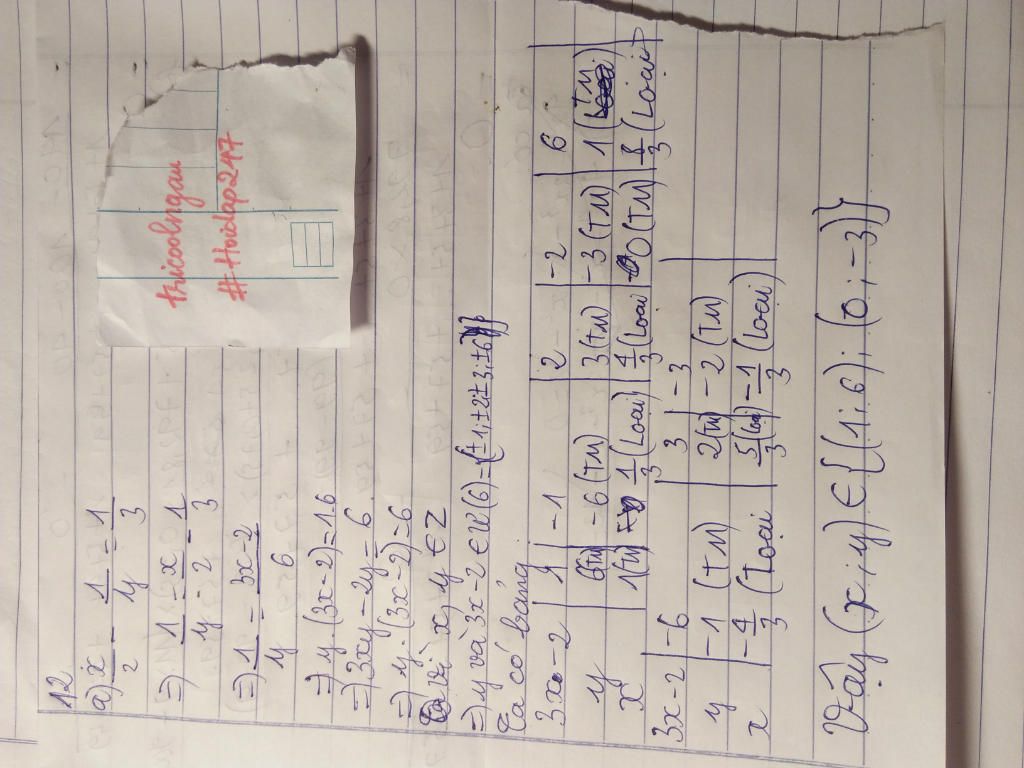 12
a) x/2 - 1/y = 1/3
=) 1/y = x/2 - 1/3
=) 1/y = 3x-2/6
=) y.(3x-2)=1.6
=) 3xy-2y=6
=) y.(3x-2)=6
Vì x, y ∈ Z
=) y và 3x-2 ∈ Ư(6)={±1;±2;±3;±6}
Ta có bảng
3x-2 | 1 | -1 | 2 | -2 | 6
y | 6(TM) | -6(TM) | 3(TM) | -3(TM) | 1(TM)
x | 1(TM) | 1/3 (Loại) | 4/3 (Loại) | 0(TM) | 8/3 (Loại)
3x-2 | -6 | 3 | -3
y | -1 (TM) | 2(TM) | -2(TM)
x | -4/3 (Loại | 5/3 (Loại) | -1/3 (Loại)
Vậy (x;y) ∈ {(1;6);(0;-3)}
tricolngan
#Hoidap247